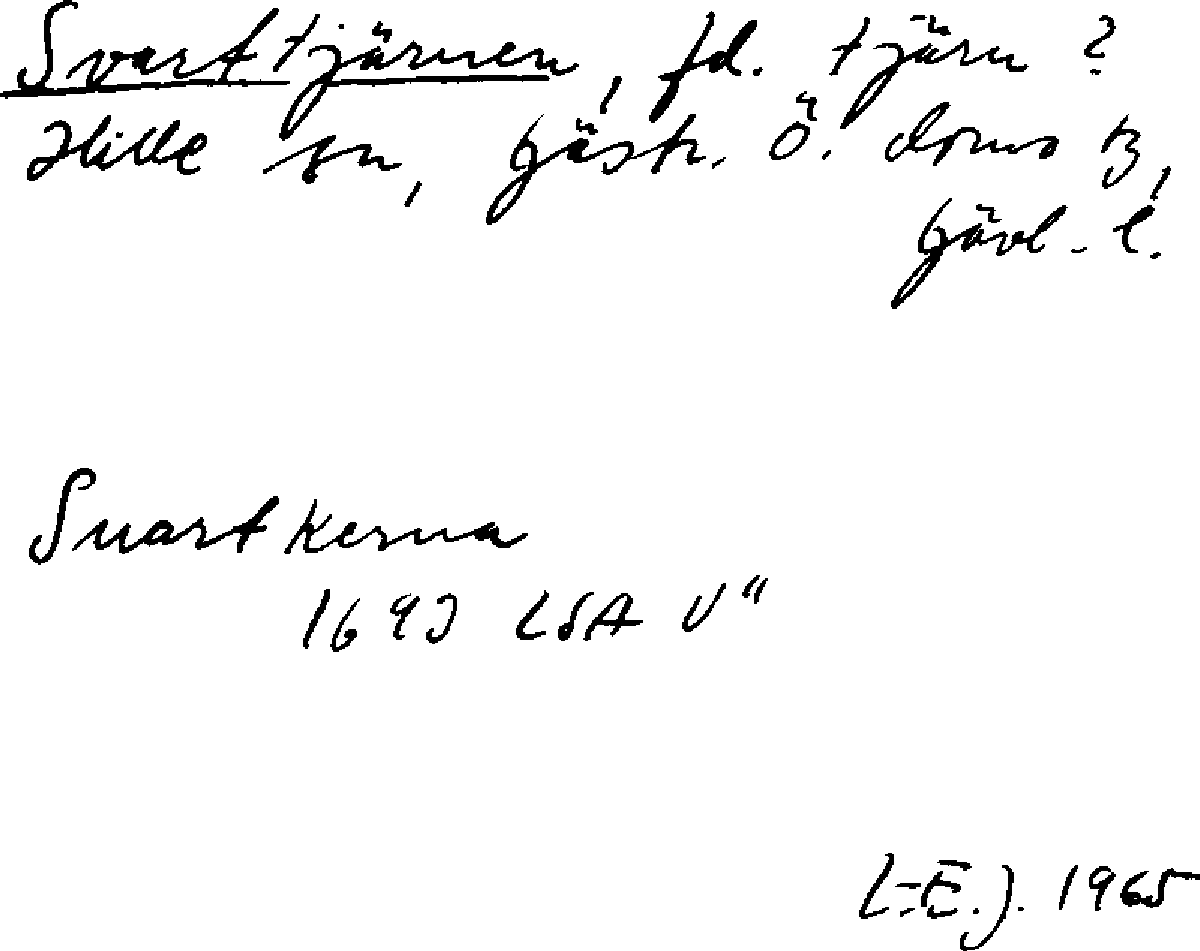 Svarttjärnen, fd. tjärn?
Hille sn, Gästr. Ö. doms tg,
Gävl. l.
Suartkerna
1693 LSA U"
L-E.J. 1965